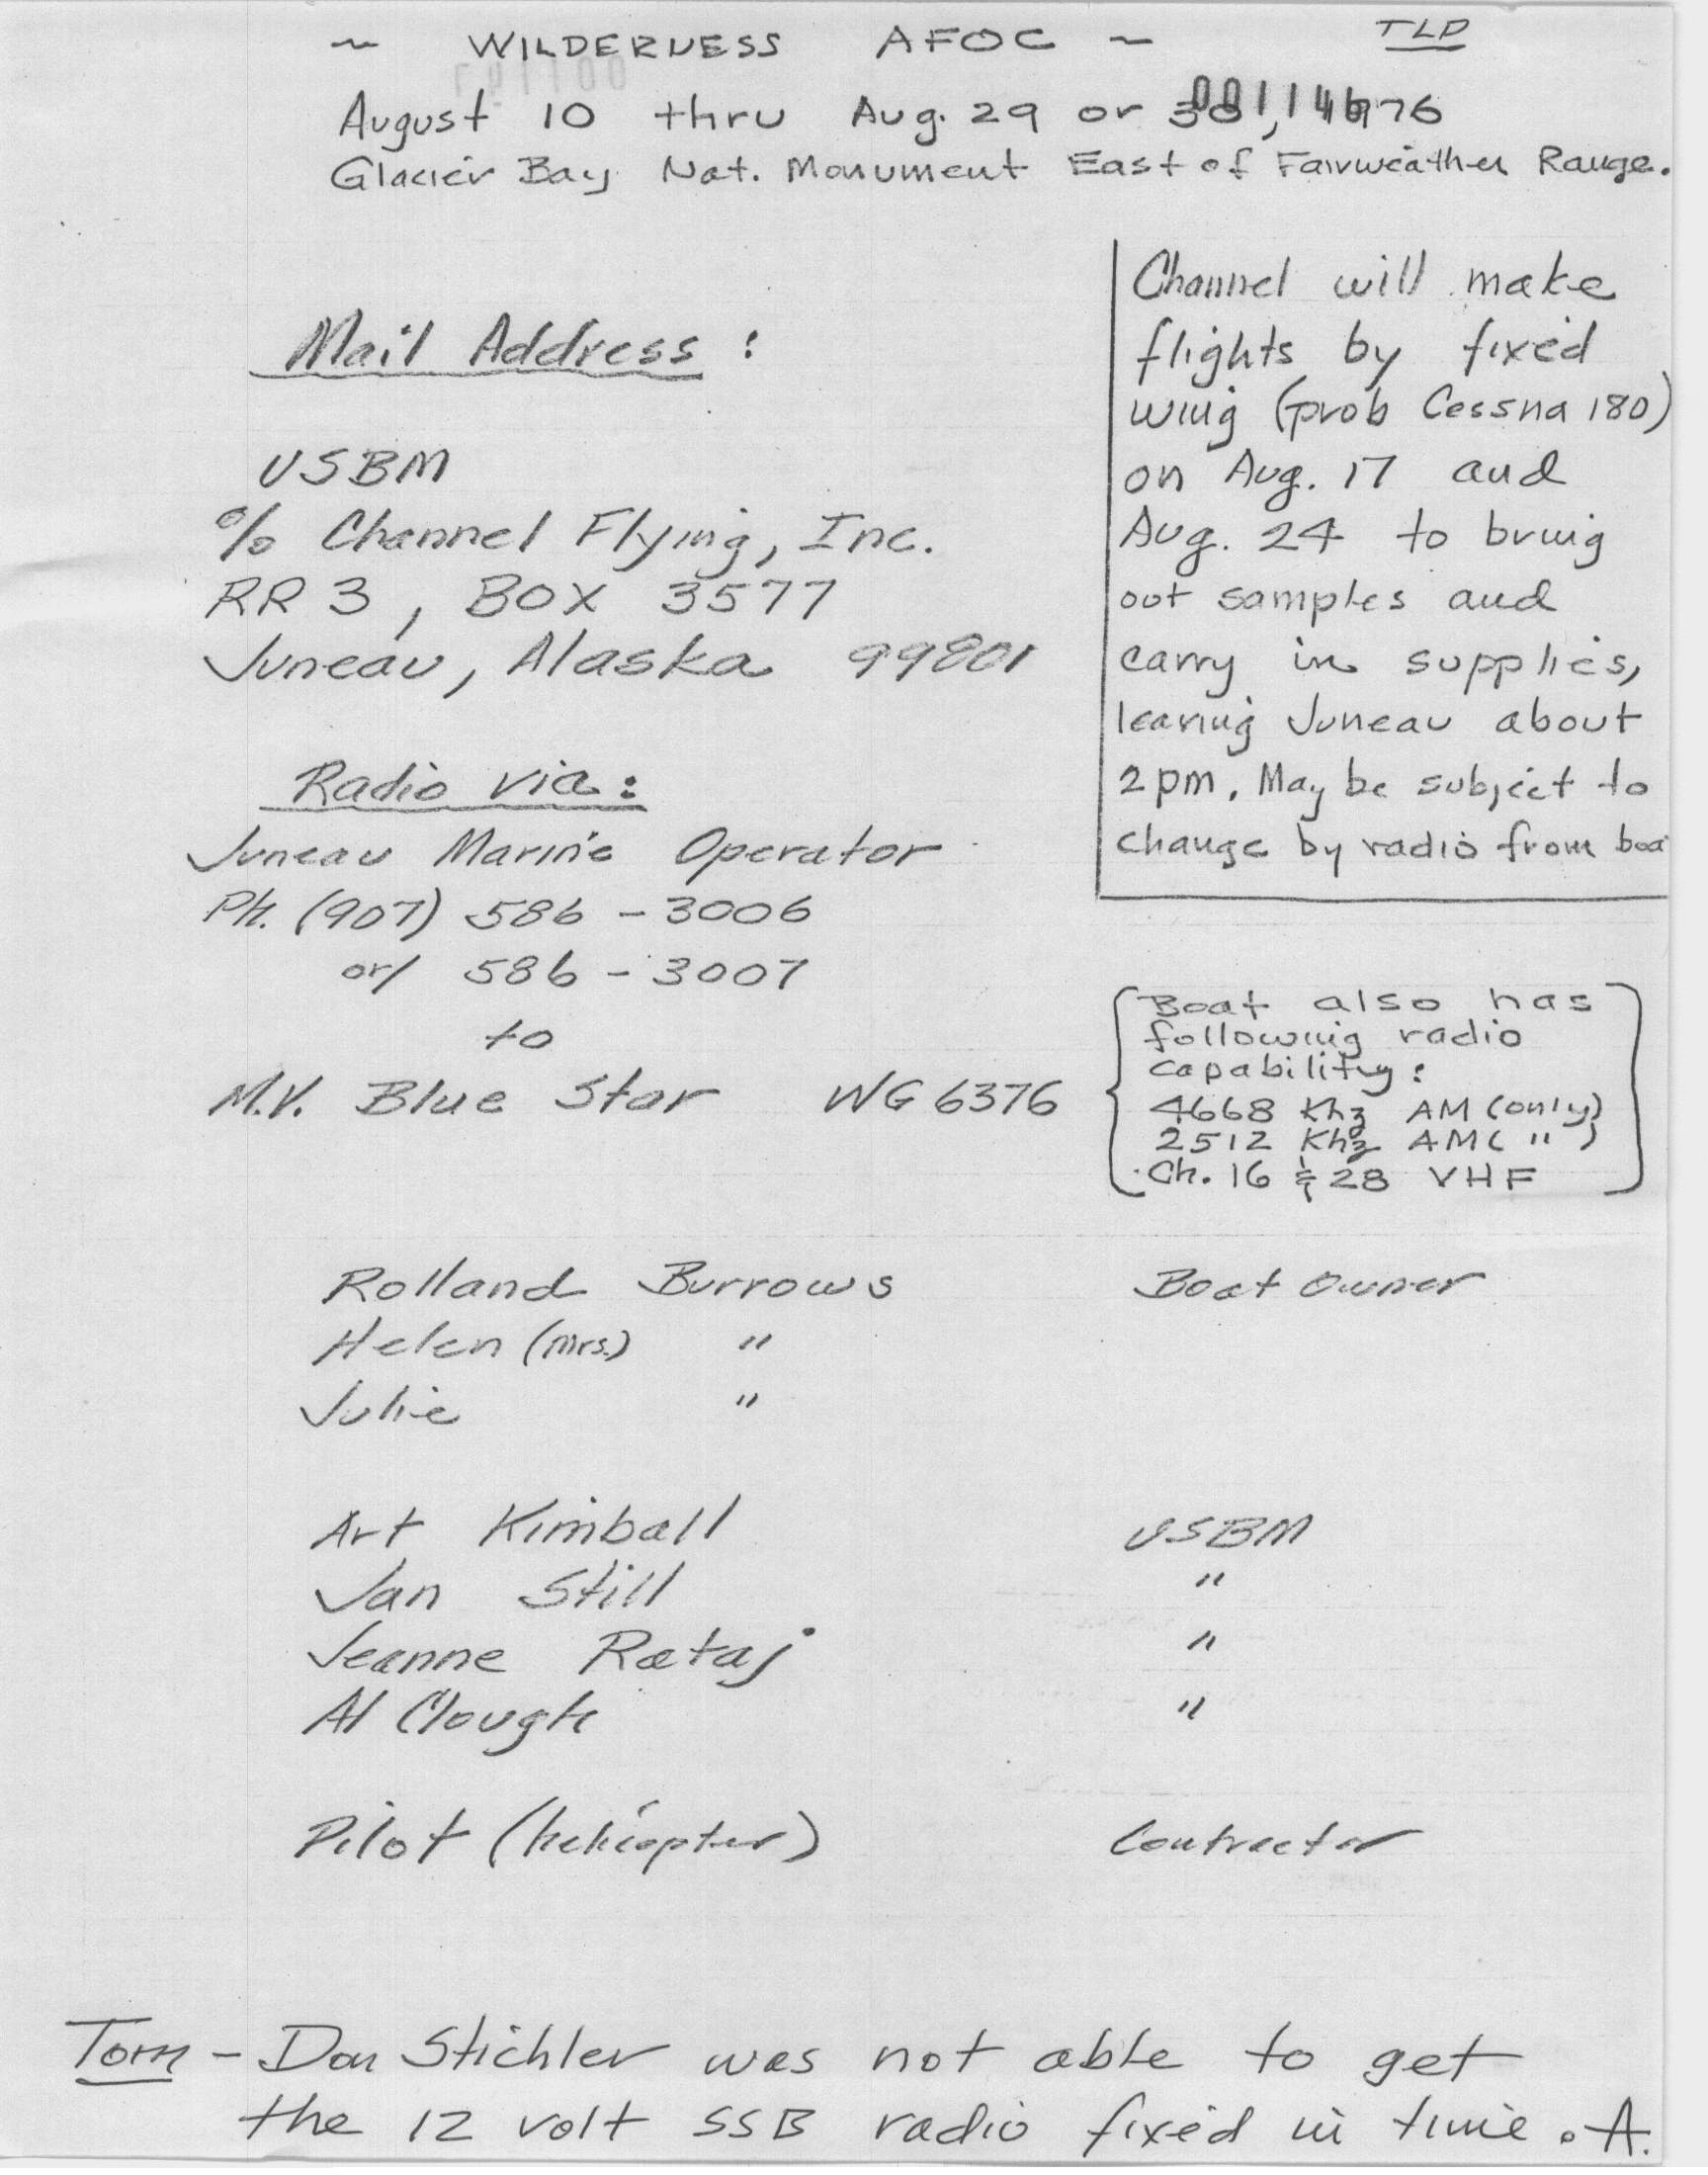 ~ WILDERNESS AFOC ~ TLP
August 10 thru Aug. 29 or 30, 1976
001146
Glacier Bay Nat. Monument East of Fairweather Range.
Mail Address:
USBM
c/o Channel Flying, Inc.
RR 3, BOX 3577
Juneau, Alaska 99801
Channel will make
flights by fixed
wing (prob Cessna 180)
on Aug. 17 and
Aug. 24 to bring
out samples and
carry in supplies,
leaving Juneau about
2 pm. May be subject to
change by radio from boa
Radio via:
Juneau Marine Operator
Ph. (907) 586-3006
or/ 586-3007
to
M.V. Blue Star WG 6376
Boat also has
following radio
capability:
4668 Khz AM (only)
2512 Khz AM ( " )
Ch. 16 & 28 VHF
Rolland Burrows Boat Owner
Helen (Mrs.) "
Julie "
Art Kimball USBM
Jan Still "
Jeanne Rataj "
Al Clough "
Pilot (helicopter) Contractor
Tom - Don Stichler was not able to get
the 12 volt SSB radio fixed in time. A.